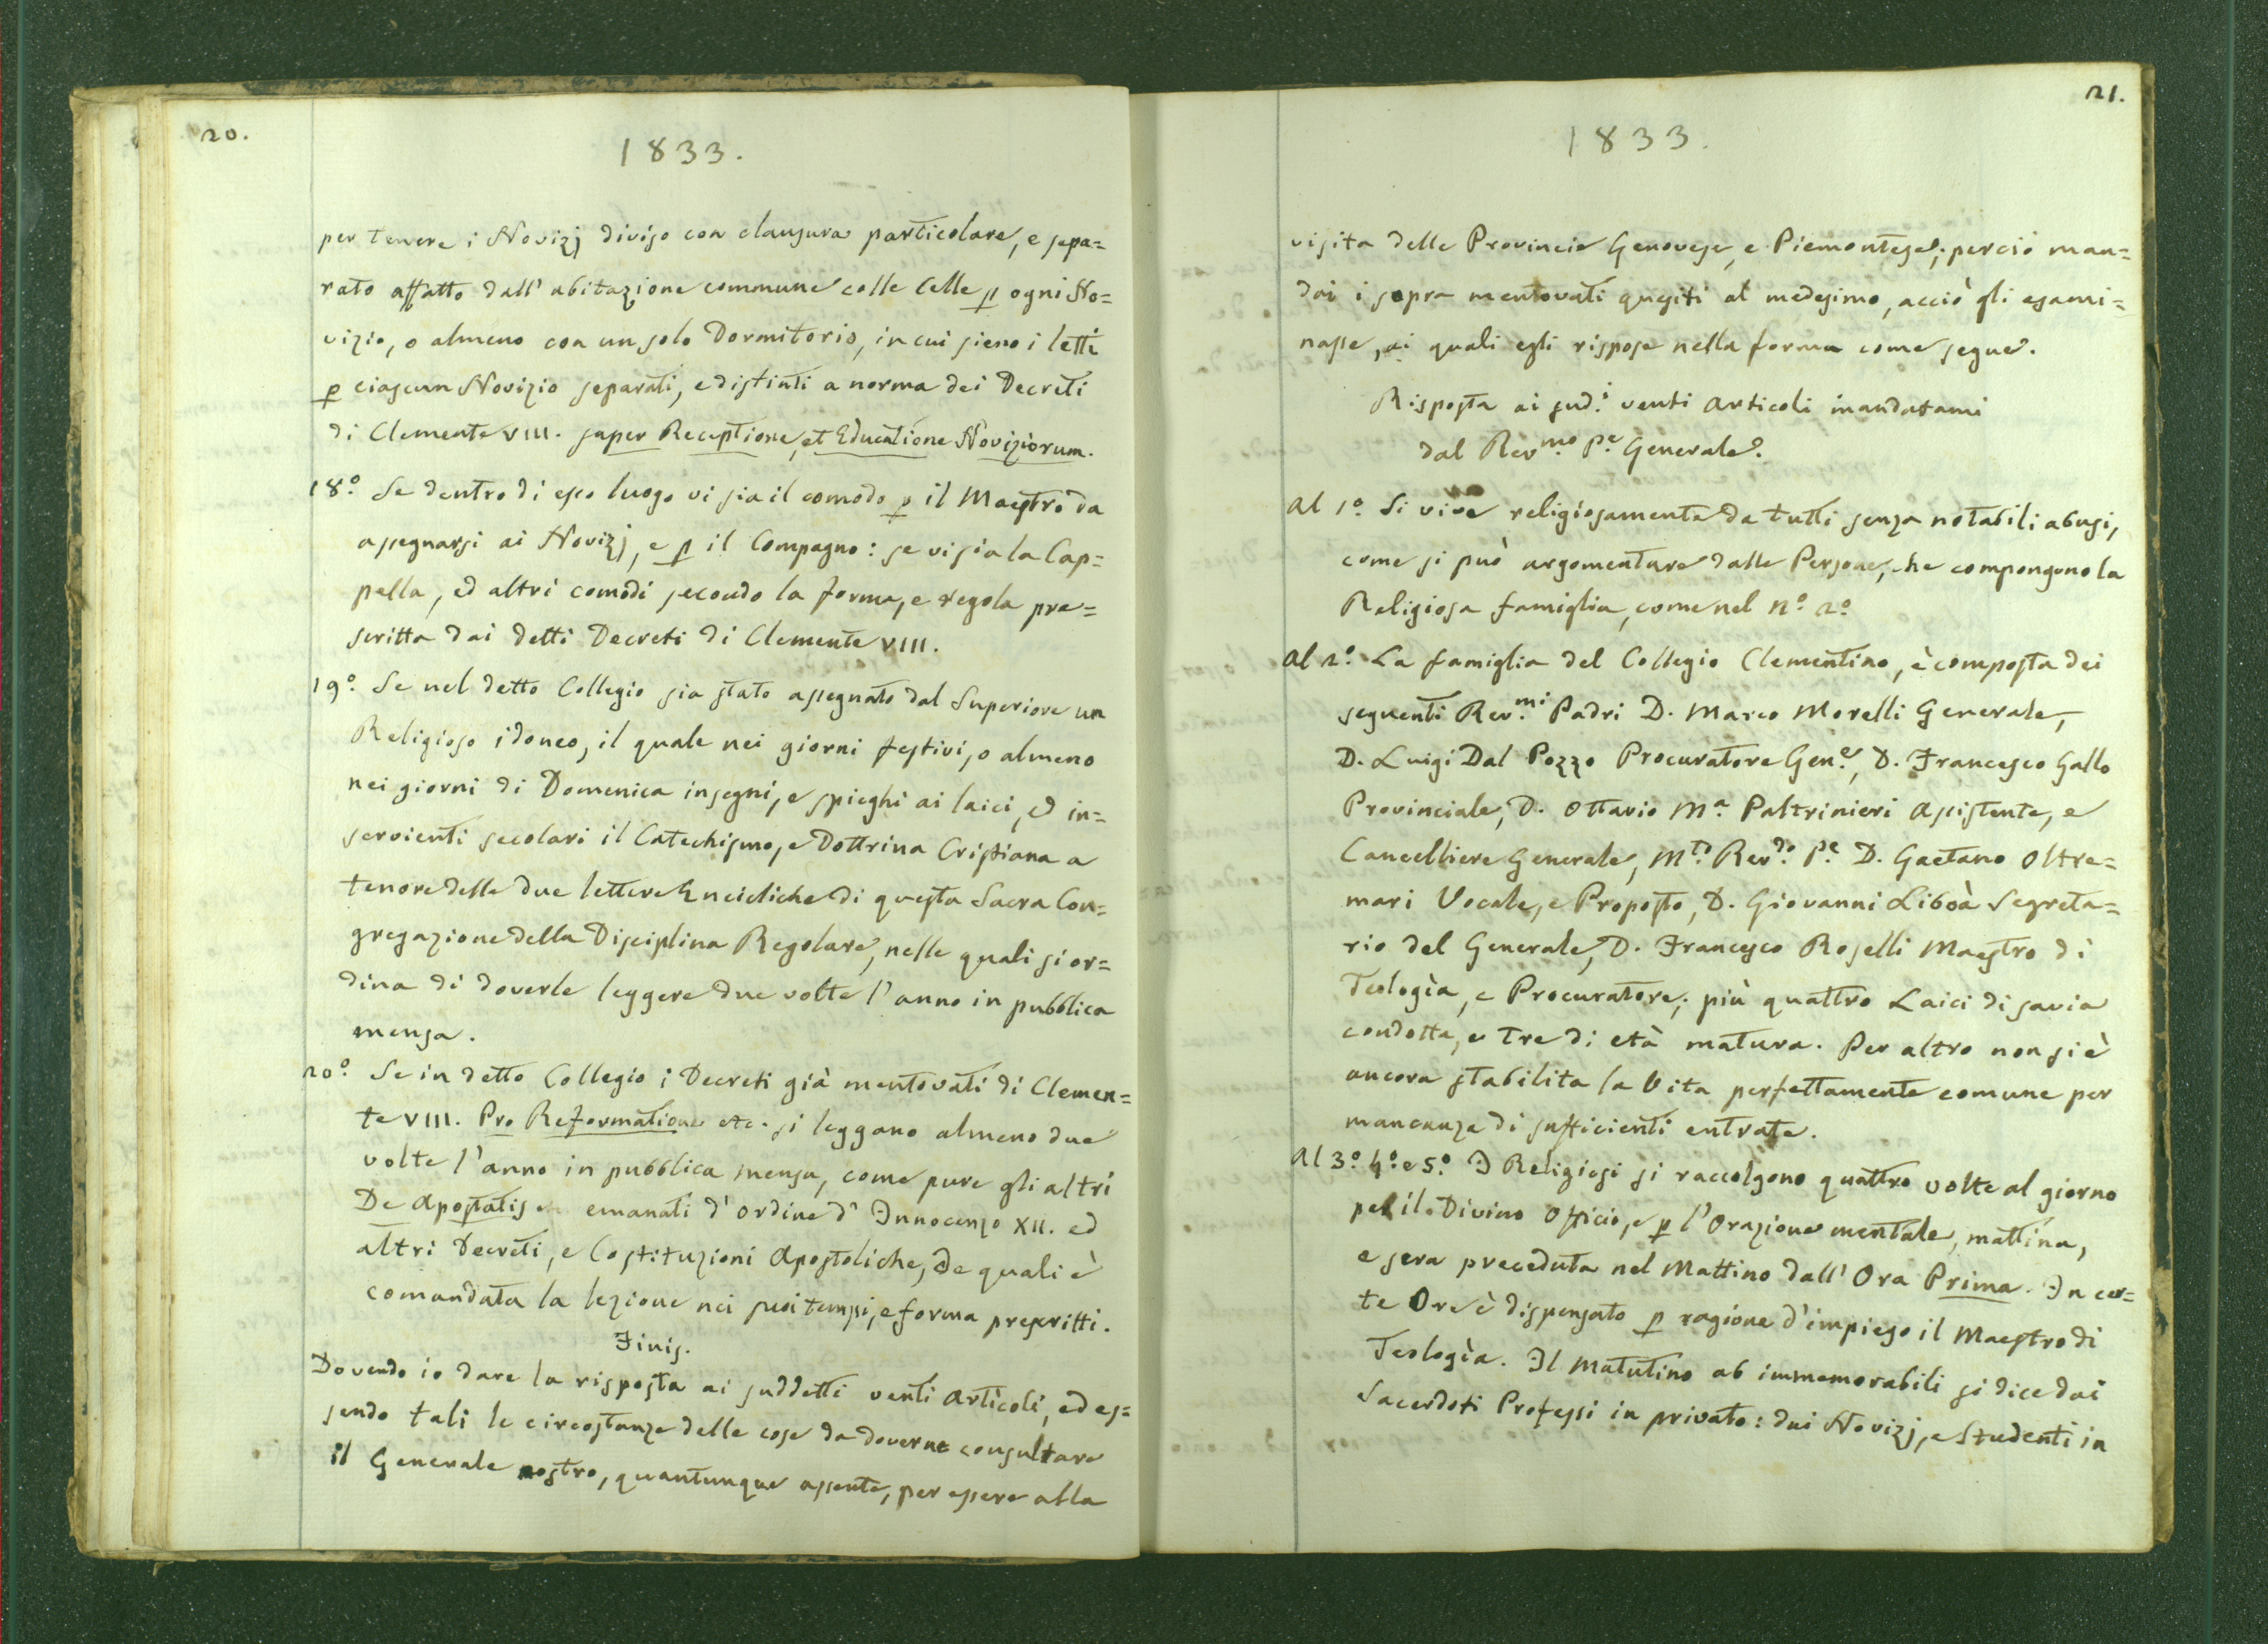 20.
1833.
per tenere i Novizj diviso con clausura particolare, e sepa=
rato affatto dall' abitazione commune colle Celle p ogni No=
vizio, o almeno con un solo Dormitorio, in cui sieno i letti
p ciascun Novizio separati, e distinti a norma dei Decreti
di Clemente VIII. super Receptione, et Educatione Noviziorum.
18.° Se dentro di esso luogo vi sia il comodo p il Maestro da
assegnarsi ai Novizj, e p il Compagno: se vi sia la Cap=
pella, ed altri comodi secondo la forma, e regola pre=
scritta dai detti Decreti di Clemente VIII.
19.° Se nel detto Collegio sia stato assegnato dal Superiore un
Religioso idoneo, il quale nei giorni festivi, o almeno
nei giorni di Domenica insegni, e spieghi ai laici, ed in=
servienti secolari il Catechismo, e Dottrina Cristiana a
tenore delle due lettere Encicliche di questa Sacra Con=
gregazione della Disciplina Regolare, nelle quali si or=
dina di doverle leggere due volte l'anno in pubblica
mensa.
20.° Se in detto Collegio i Decreti già mentovati di Clemen=
te VIII. Pro Reformatione etc. si leggano almeno due
volte l'anno in pubblica mensa, come pure gli altri
De Apostatis emanati d'ordine d'Innocenzo XII. ed
altri Decreti, e Costituzioni Apostoliche, de quali è
comandata la lezione nei suoi tempi, e forma prescritti.
Finis.
Dovendo io dare la risposta ai suddetti venti Articoli, ed es=
sendo tali le circostanze delle cose da doverne consultare
il Generale nostro, quantunque assente, per essere alla
21.
1833.
visita delle Provincie Genovese, e Piemontese; perciò man=
dai i sopra mentovati quesiti al medesimo, acciò gli esami=
nasse, ai quali egli rispose nella forma come segue.
Risposta ai sud.i venti Articoli mandatami
dal Rev.mo P.e Generale.
Al 1.° Si vive religiosamente da tutti senza notabili abusi,
come si può argomentare dalle Persone, che compongono la
Religiosa famiglia, come nel N.° 2.°
Al 2.° La famiglia del Collegio Clementino, è composta dei
seguenti Rev.mi Padri D. Marco Morelli Generale,
D. Luigi Dal Pozzo Procuratore Gen.e, D. Francesco Gallo
Provinciale, D. Ottavio M.a Paltrinieri Assistente, e
Cancelliere Generale, M.to Rev.do P.e D. Gaetano Oltre=
mari Vocale, e Proposto, D. Giovanni Liboà Segreta=
rio del Generale, D. Francesco Roselli Maestro di
Teologìa, e Procuratore; più quattro Laici di savia
condotta, e tre di età matura. Per altro non si è
ancora stabilita la Vita perfettamente comune per
mancanza di sufficienti entrate.
Al 3.° 4.° e 5.° I Religiosi si raccolgono quattro volte al giorno
pel il Divino Officio, e p l'Orazione mentale, mattina,
e sera preceduta nel Mattino dall' Ora Prima. In cer=
te Ore è dispensato p ragione d'impiego il Maestro di
Teologìa. Il Matutino ab immemorabili si dice dai
Sacerdoti Professi in privato: dai Novizj, e Studenti in